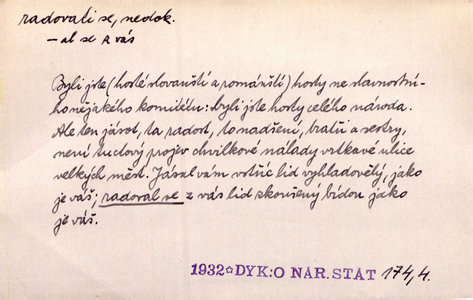 radovali se, nedok.
– al se z vás
Byli jste (hosté slovanští a románští) hosty ne slavnostní-
ho nějakého komitétu: byli jste hosty celého národa.
Ale ten jásot, ta radost, to nadšení, bratři a sestry,
není tuctový projev chvilkové nálady vrtkavé ulice
velkých měst. Jásal vám vstříc lid vyhladovělý, jako
je váš; radoval se z vás lid zkoušený bídou jako
je váš.
1932☆DYK: O NÁR. STÁT 174, 4.